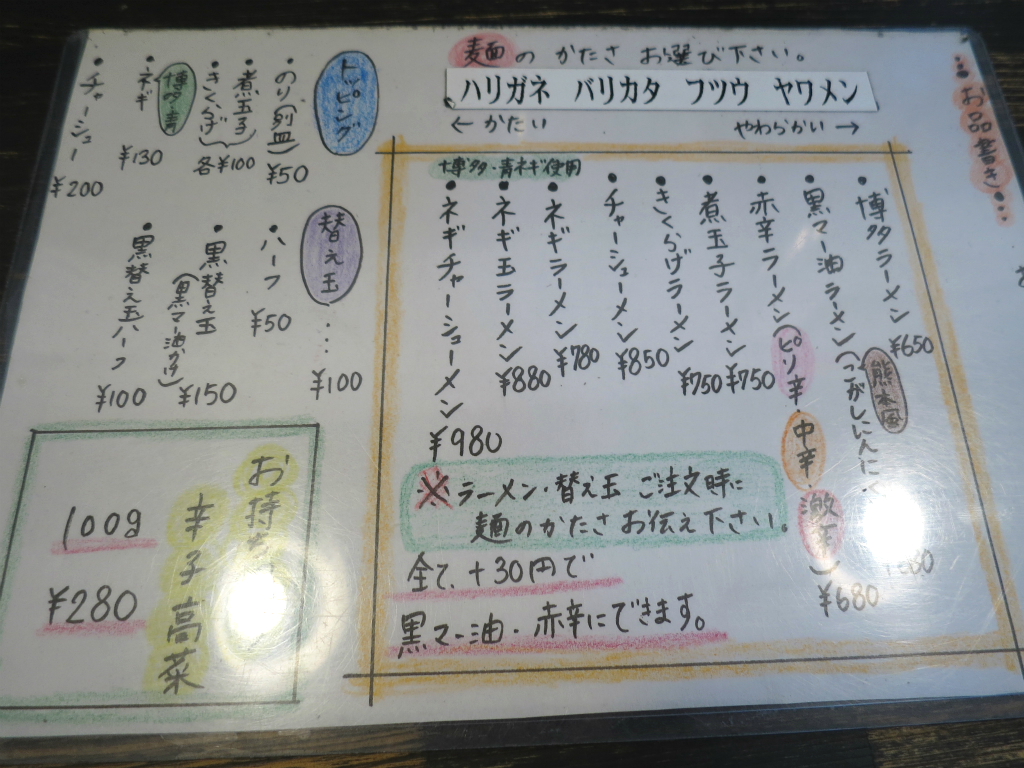 お品書き
麺のかたさ お選び下さい。
ハリガネ バリカタ フツウ ヤワメン
← かたい やわらかい →
・博多ラーメン ¥650
・黒マー油ラーメン(こがしにんにく 熊本風
・赤辛ラーメン(ピリ辛・中辛・激辛) ¥680
・煮玉子ラーメン ¥750
・きくらげラーメン ¥750
・チャーシューメン ¥850
博多・青ネギ使用
・ネギラーメン ¥780
・ネギ玉ラーメン ¥880
・ネギチャーシューメン ¥980
※ラーメン・替え玉 ご注文時に
麺のかたさお伝え下さい。
全て、+30円で
黒マー油・赤辛にできます。
トッピング
・のり(別皿) ¥50
・煮玉子
・きくらげ
各¥100
・ネギ 博多・青 ¥130
・チャーシュー ¥200
替え玉… ¥100
・ハーフ ¥50
・黒替え玉(黒マー油かけ) ¥150
・黒替え玉ハーフ ¥100
お持ち
辛子高菜
100g
¥280